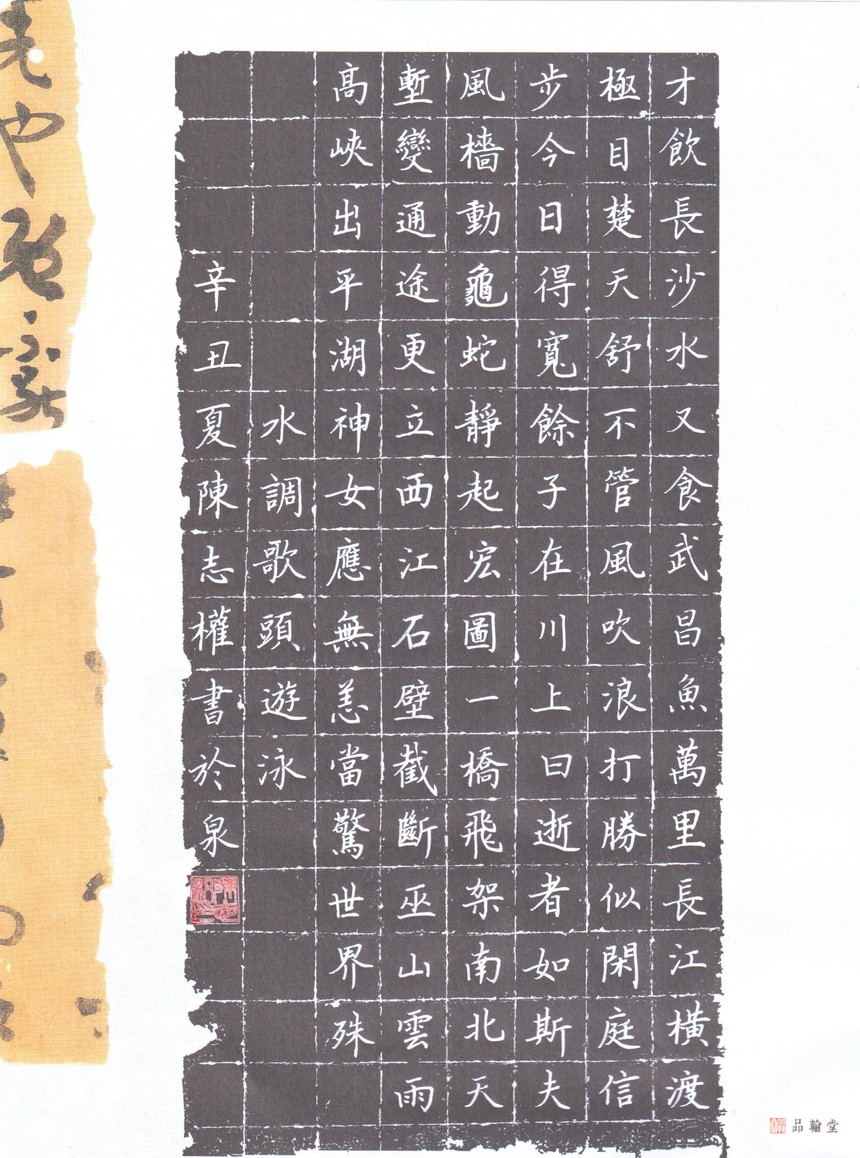 才飲長沙水又食武昌魚萬里長江橫渡
極目楚天舒不管風吹浪打勝似閑庭信
步今日得寬餘子在川上曰逝者如斯夫
風檣動龜蛇靜起宏圖一橋飛架南北天
塹變通途更立西江石壁截斷巫山雲雨
高峽出平湖神女應無恙當驚世界殊
水調歌頭遊泳
辛丑夏陳志權書於泉
品翰堂